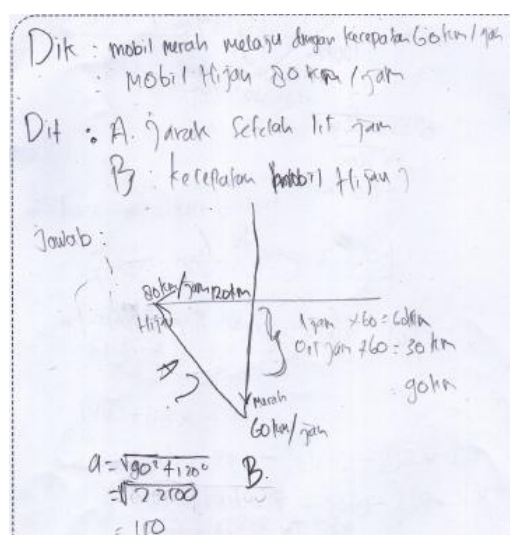 Dik : mobil merah melaju dengan kecepatan 60 km/jam
: Mobil Hijau 80 km/jam
Dit : A. Jarak Setelah 1,5 jam
B. kecepatan mobil Hijau ?
Jawab :
80 km/jam 120 km
Hijau
1 jam × 60 = 60 km
0,5 jam × 60 = 30 km
90 km
A
Merah
60 km/jam
a = √90² + 120²
= √22500
= 150
B.